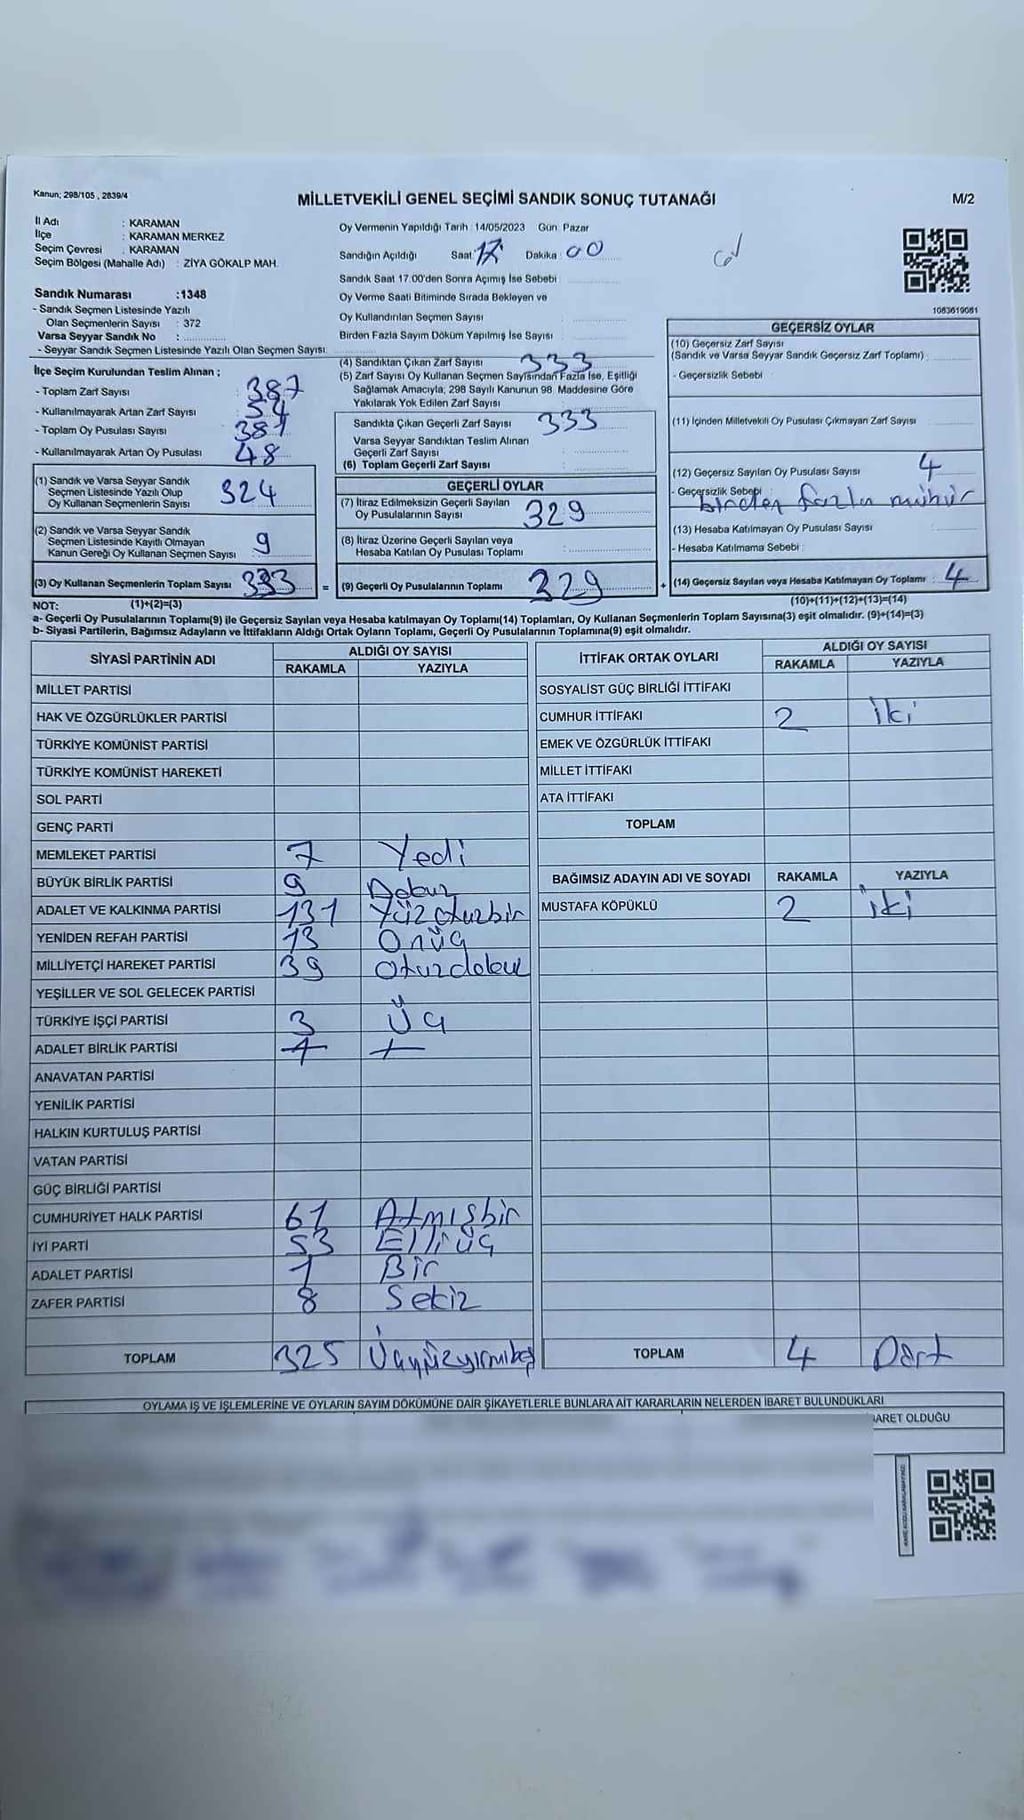 Kanun; 298/105 , 2839/4
MİLLETVEKİLİ GENEL SEÇİMİ SANDIK SONUÇ TUTANAĞI
M/2
İl Adı : KARAMAN
İlçe : KARAMAN MERKEZ
Seçim Çevresi : KARAMAN
Seçim Bölgesi (Mahalle Adı) : ZİYA GÖKALP MAH.
Sandık Numarası :1348
- Sandık Seçmen Listesinde Yazılı
Olan Seçmenlerin Sayısı : 372
Varsa Seyyar Sandık No :
- Seyyar Sandık Seçmen Listesinde Yazılı Olan Seçmen Sayısı:
Oy Vermenin Yapıldığı Tarih : 14/05/2023 Gün: Pazar
Sandığın Açıldığı Saat: 17 Dakika: 00
Sandık Saat 17.00'den Sonra Açımış İse Sebebi :
Oy Verme Saati Bitiminde Sırada Bekleyen ve
Oy Kullandırılan Seçmen Sayısı :
Birden Fazla Sayım Döküm Yapılmış İse Sayısı :
1083619081
İlçe Seçim Kurulundan Teslim Alınan ;
- Toplam Zarf Sayısı : 387
- Kullanılmayarak Artan Zarf Sayısı : 54
- Toplam Oy Pusulası Sayısı : 381
- Kullanılmayarak Artan Oy Pusulası : 48
(1) Sandık ve Varsa Seyyar Sandık
Seçmen Listesinde Yazılı Olup
Oy Kullanan Seçmenlerin Sayısı : 324
(2) Sandık ve Varsa Seyyar Sandık
Seçmen Listesinde Kayıtlı Olmayan
Kanun Gereği Oy Kullanan Seçmen Sayısı : 9
(3) Oy Kullanan Seçmenlerin Toplam Sayısı : 333
(4) Sandıktan Çıkan Zarf Sayısı : 333
(5) Zarf Sayısı Oy Kullanan Seçmen Sayısından Fazla İse, Eşitliği
Sağlamak Amacıyla; 298 Sayılı Kanunun 98. Maddesine Göre
Yakılarak Yok Edilen Zarf Sayısı :
Sandıkta Çıkan Geçerli Zarf Sayısı : 333
Varsa Seyyar Sandıktan Teslim Alınan
Geçerli Zarf Sayısı :
(6) Toplam Geçerli Zarf Sayısı :
GEÇERLİ OYLAR
(7) İtiraz Edilmeksizin Geçerli Sayılan
Oy Pusulalarının Sayısı : 329
(8) İtiraz Üzerine Geçerli Sayılan veya
Hesaba Katılan Oy Pusulası Toplamı :
= (9) Geçerli Oy Pusulalarının Toplamı : 329
GEÇERSİZ OYLAR
(10) Geçersiz Zarf Sayısı
(Sandık ve Varsa Seyyar Sandık Geçersiz Zarf Toplamı) :
- Geçersizlik Sebebi :
(11) İçinden Milletvekili Oy Pusulası Çıkmayan Zarf Sayısı :
(12) Geçersiz Sayılan Oy Pusulası Sayısı : 4
- Geçersizlik Sebebi : birden fazla mühür
(13) Hesaba Katılmayan Oy Pusulası Sayısı :
- Hesaba Katılmama Sebebi :
+ (14) Geçersiz Sayılan veya Hesaba Katılmayan Oy Toplamı : 4
NOT: (1)+(2)=(3)
(10)+(11)+(12)+(13)=(14)
a- Geçerli Oy Pusulalarının Toplamı(9) ile Geçersiz Sayılan veya Hesaba katılmayan Oy Toplamı(14) Toplamları, Oy Kullanan Seçmenlerin Toplam Sayısına(3) eşit olmalıdır. (9)+(14)=(3)
b- Siyasi Partilerin, Bağımsız Adayların ve İttifakların Aldığı Ortak Oyların Toplamı, Geçerli Oy Pusulalarının Toplamına(9) eşit olmalıdır.
SİYASİ PARTİNİN ADI ALDIĞI OY SAYISI
RAKAMLA YAZIYLA
MİLLET PARTİSİ
HAK VE ÖZGÜRLÜKLER PARTİSİ
TÜRKİYE KOMÜNİST PARTİSİ
TÜRKİYE KOMÜNİST HAREKETİ
SOL PARTİ
GENÇ PARTİ
MEMLEKET PARTİSİ 7 Yedi
BÜYÜK BİRLİK PARTİSİ 9 Dokuz
ADALET VE KALKINMA PARTİSİ 131 Yüzotuzbir
YENİDEN REFAH PARTİSİ 13 Onüç
MİLLİYETÇİ HAREKET PARTİSİ 39 Otuzdokuz
YEŞİLLER VE SOL GELECEK PARTİSİ
TÜRKİYE İŞÇİ PARTİSİ 3 Üç
ADALET BİRLİK PARTİSİ
ANAVATAN PARTİSİ
YENİLİK PARTİSİ
HALKIN KURTULUŞ PARTİSİ
VATAN PARTİSİ
GÜÇ BİRLİĞİ PARTİSİ
CUMHURİYET HALK PARTİSİ 61 Atmışbir
İYİ PARTİ 53 Elliüç
ADALET PARTİSİ 1 Bir
ZAFER PARTİSİ 8 Sekiz
TOPLAM 325 Üçyüzyirmibeş
İTTİFAK ORTAK OYLARI ALDIĞI OY SAYISI
RAKAMLA YAZIYLA
SOSYALİST GÜÇ BİRLİĞİ İTTİFAKI
CUMHUR İTTİFAKI 2 İki
EMEK VE ÖZGÜRLÜK İTTİFAKI
MİLLET İTTİFAKI
ATA İTTİFAKI
TOPLAM
BAĞIMSIZ ADAYIN ADI VE SOYADI RAKAMLA YAZIYLA
MUSTAFA KÖPÜKLÜ 2 İki
TOPLAM 4 Dört
OYLAMA İŞ VE İŞLEMLERİNE VE OYLARIN SAYIM DÖKÜMÜNE DAİR ŞİKAYETLERLE BUNLARA AİT KARARLARIN NELERDEN İBARET BULUNDUKLARI
BARET OLDUĞU